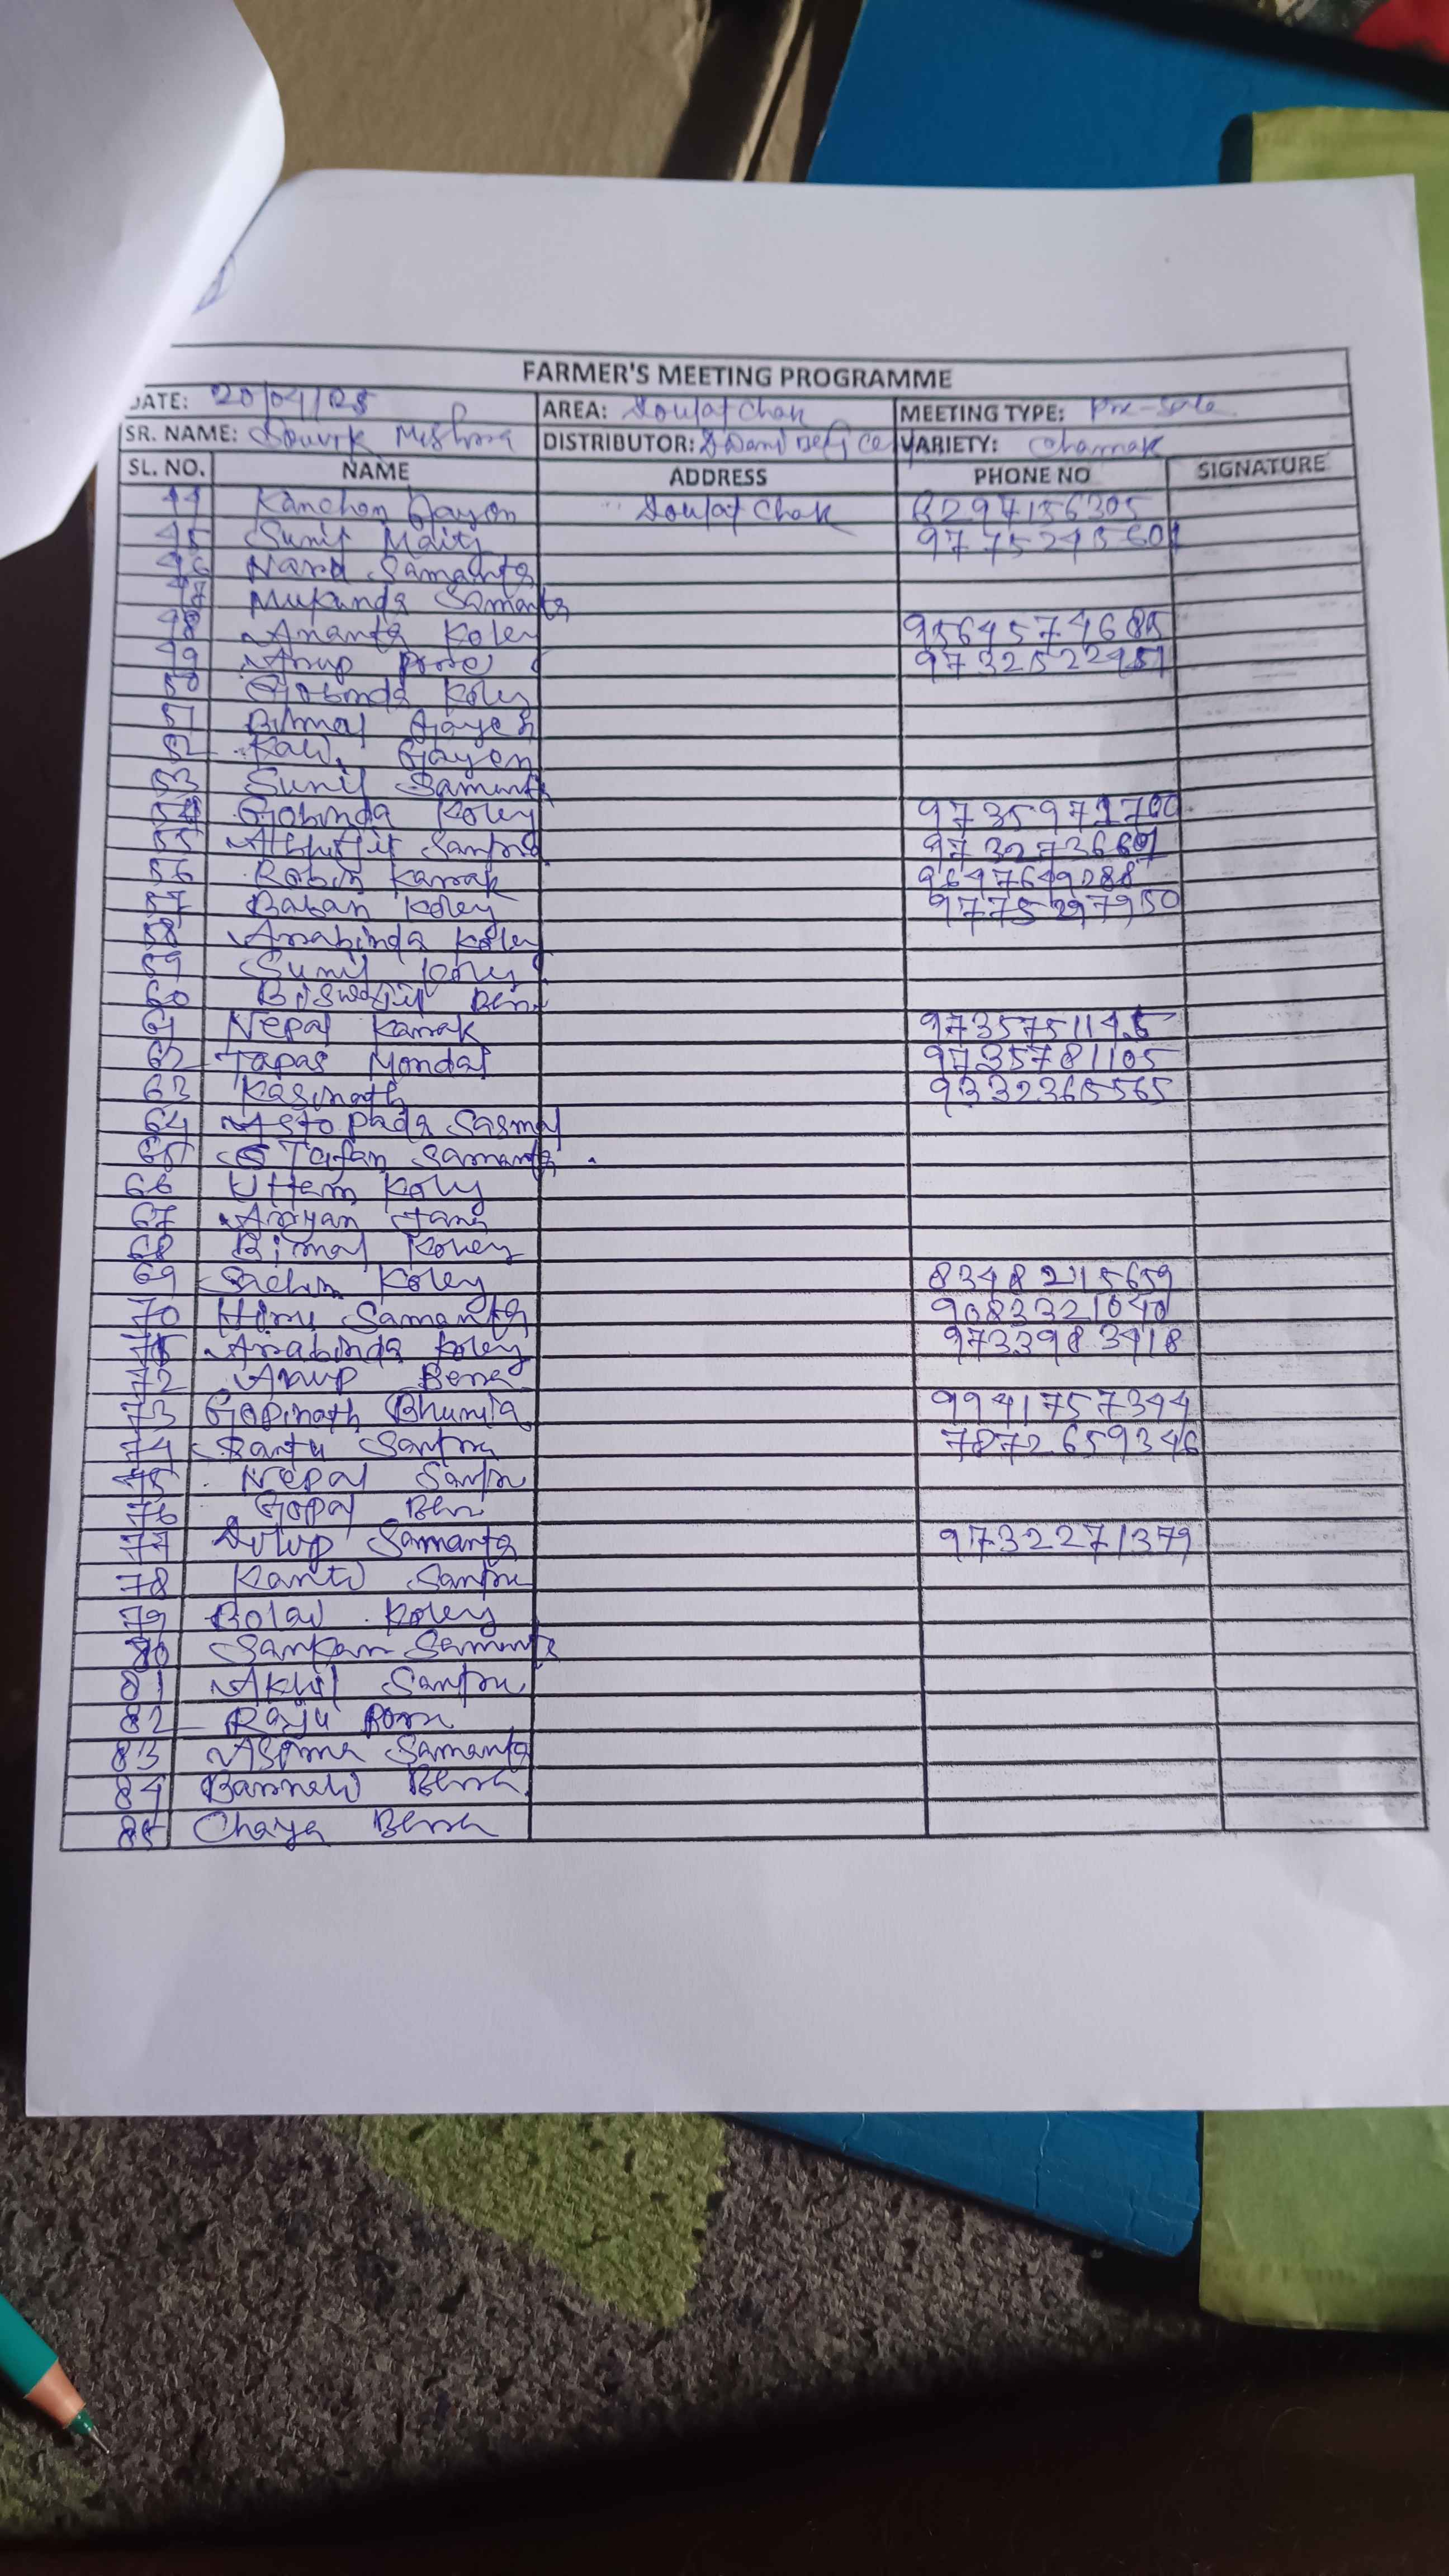 FARMER'S MEETING PROGRAMME
DATE: 20/04/25 AREA: Doulat Chak MEETING TYPE: Pre-Sale
SR. NAME: Souvik Mishra DISTRIBUTOR: VARIETY: Chamak
SL. NO. NAME ADDRESS PHONE NO SIGNATURE
44 Kanchan Gayen Doulat Chak 8297156305
45 Sunil Maity
46 Nara Samanta
47 Mukunda Samanta
48 Ananta Koley
49 Arup
50 Gobinda Koley
51 Bimal Gayen
52 Kali Gayen
53 Sunil Samanta
54 Gobinda Koley
55 Abhijit Santra
56 Robin Karrak
57 Baban Koley 9775297950
58 Arrabinda Koley
59 Sunil Koley
60 Biswajit Bera
61 Nepal Karrak
62 Tapas Mondal 9735781105
63 Kasinath 9332365565
64 Asto pada Sasmal
65 Tapan Samanta
66 Uttam Koley
67 Aryan Jana
68 Bimal Koley
69 Sachin Koley
70 Hiru Samanta 9083321040
71 Arrabinda Koley 9733983418
72 Arup Bera
73 Gopinath Bhunia 9941757344
74 Santu Santra 7872659346
75 Nepal Santra
76 Gopal Bera
77 Dilip Samanta 9732271379
78 Kanti Santra
79 Bolai Koley
80 Sankar Samanta
81 Akhil Santra
82 Raju
83 Asima Samanta
84 Bera
85 Chaya Bera